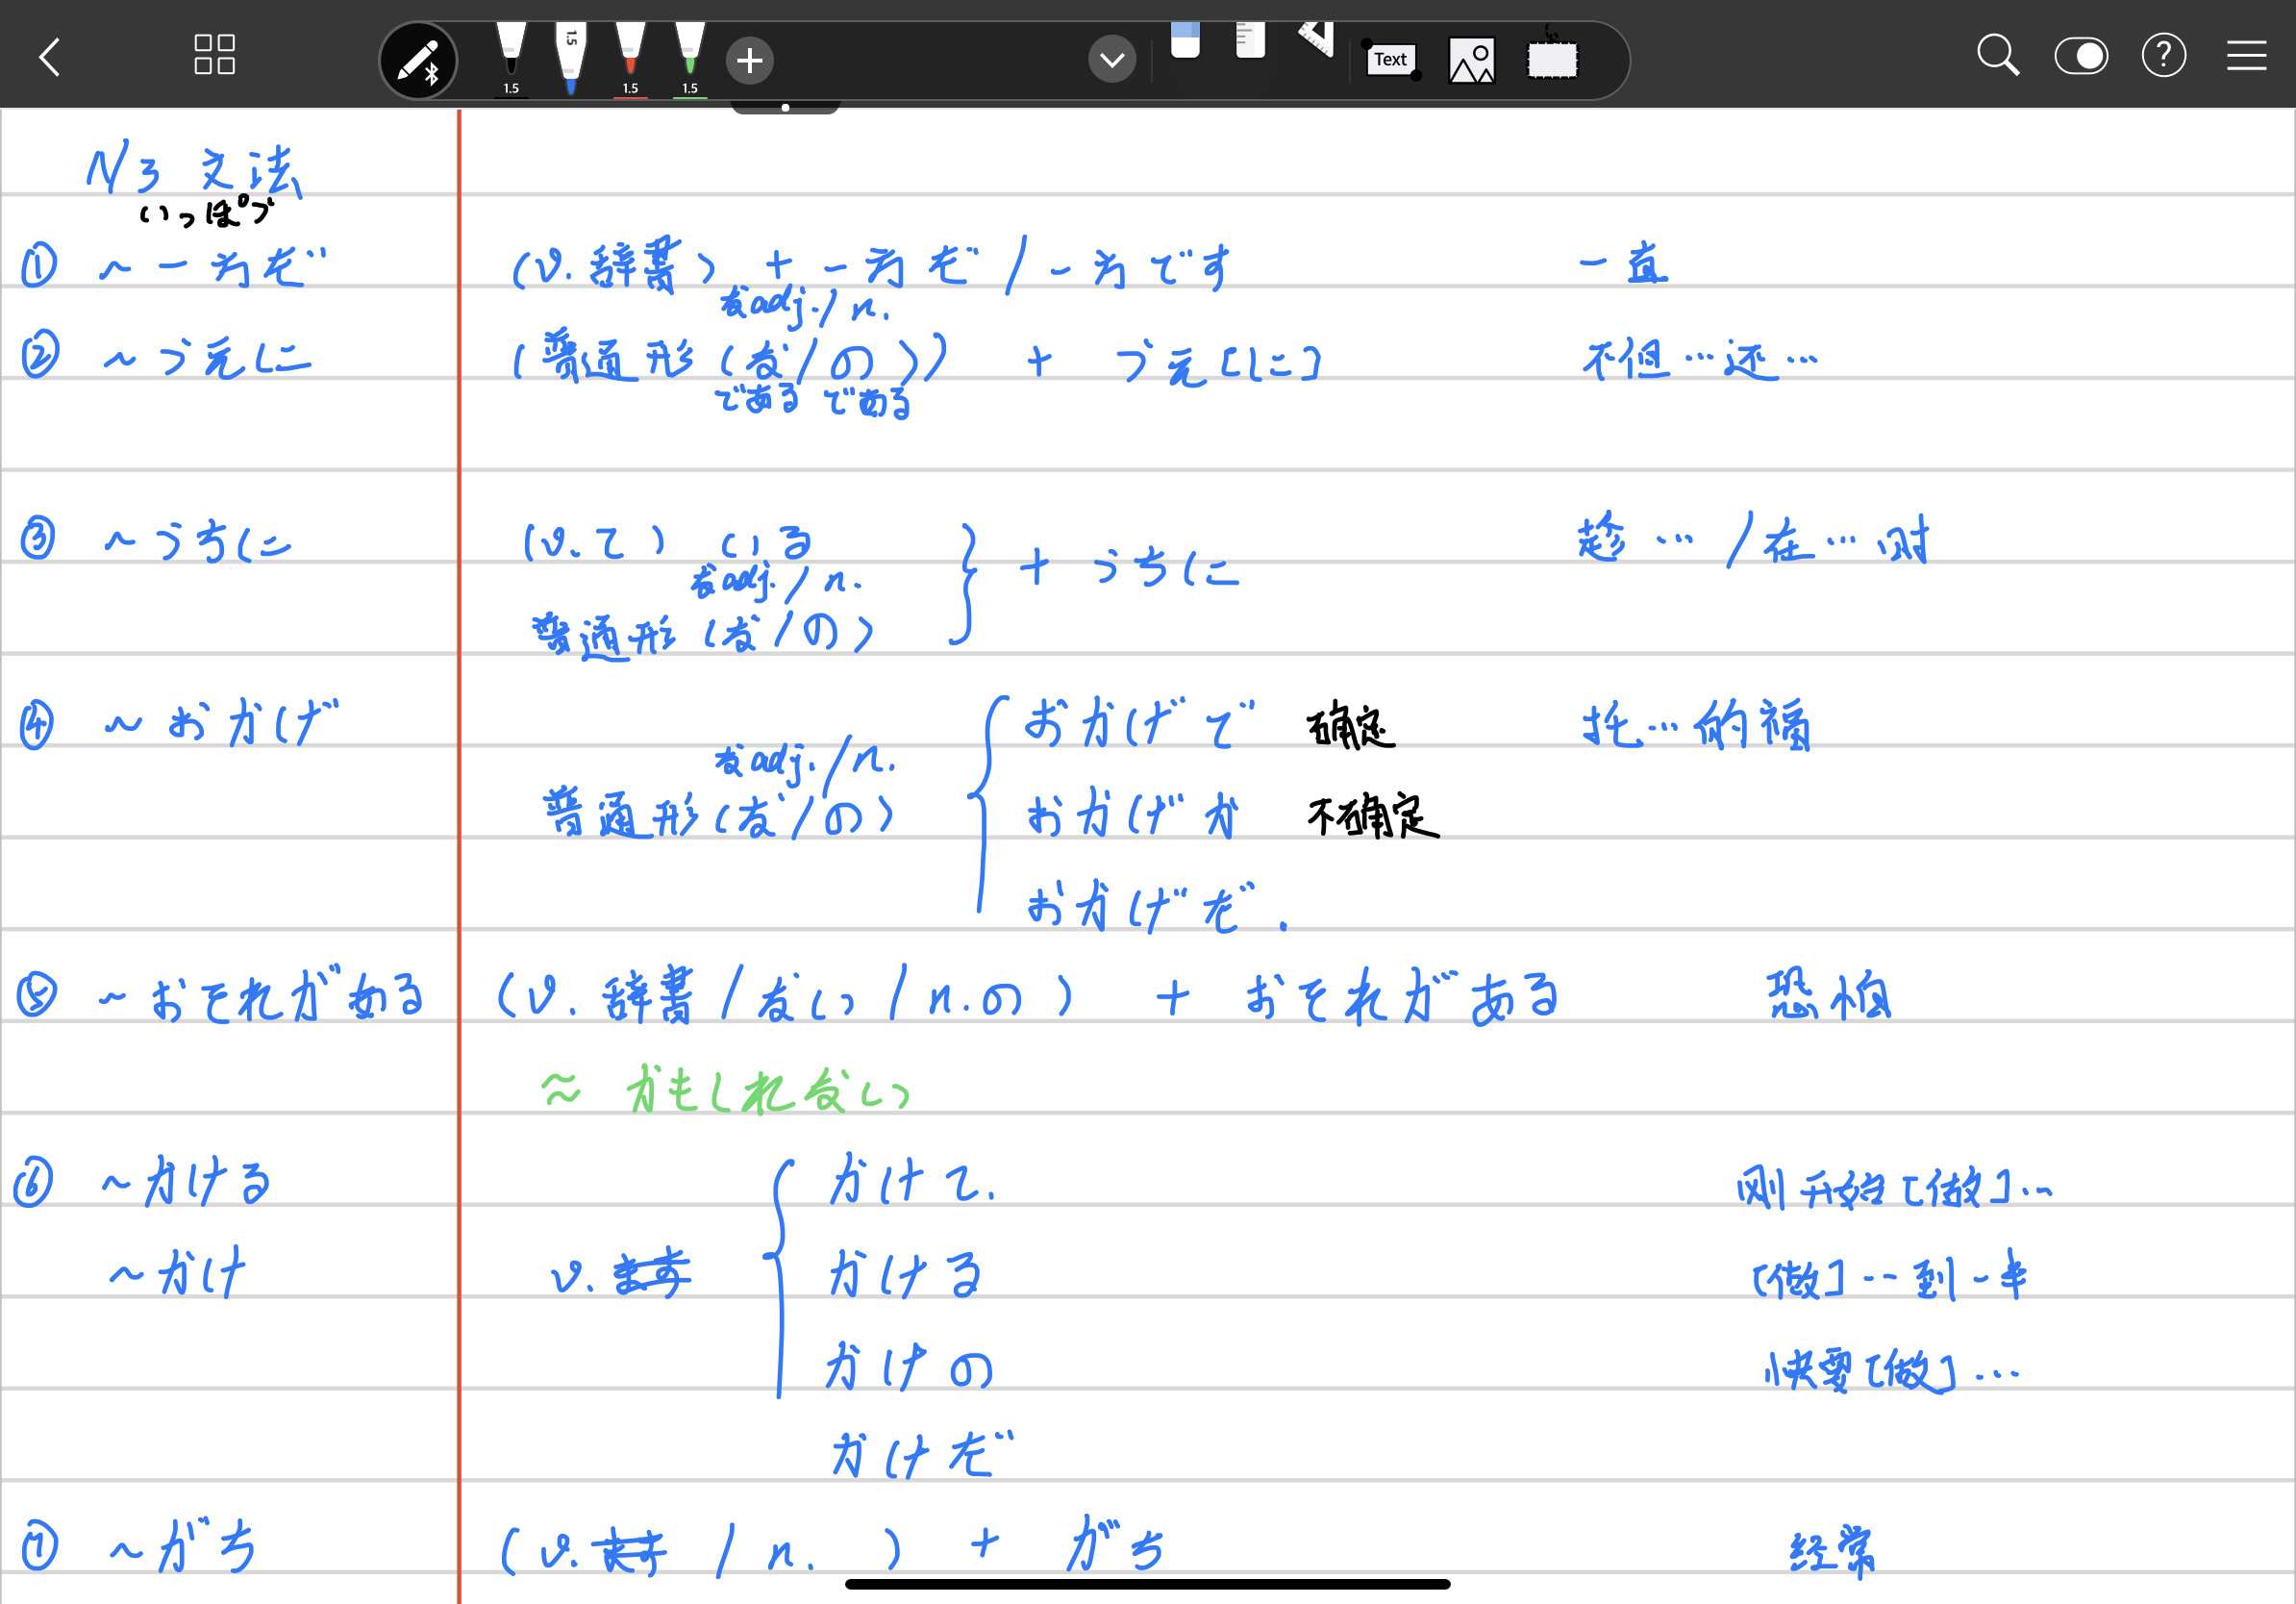 1.5
1.5
1.5
1.5
Text
?
N3 文法
いっぽうだ
① ～一方だ (v.辞書) + 一方だ / 一方で 一直
なadj. / n.
② ～うえに (普通形 (な/の)) + うえ[に] 不但…还…
である である
③ ～うちに (v.て) いる
なadj. / n.
普通形 (な/の) + うちに 趁… / 在…时
④ ～おかげ おかげで 托…的福
なadj. / n.
普通形 (な/の) おかげか 不确定
おかげだ.
⑤ ～おそれがある (v.辞書 / ない / n.の) + おそれがある 恐怕
≈ かもしれない
⑥ ～かける かけて.
～かけ v.ます かける [做]…到一半
かけの 快要[做]…
かけだ
⑦ ～がち (v.ます / n. ) + がち 经常